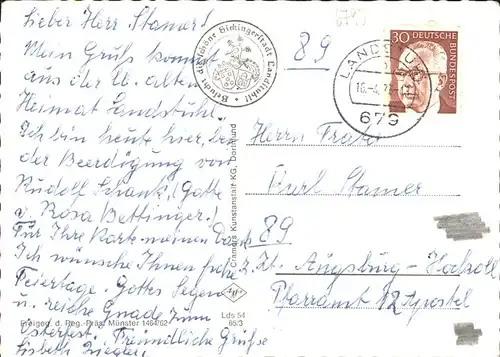 Lieber Herr Stamer!
Mein Gruß kommt
aus der lb. alten
Heimat Landstuhl.
Ich bin heute hier, bei
der Beerdigung von
Rudolf Schank, (Gatte
v. Rosa Bettinger.)
Für Ihre Karte meinen Dank
Ich wünsche Ihnen frohe
Feiertage. Gottes Segen
u. reiche Gnade zum
Osterfest. Freundliche Grüße
Lisbeth Ziegler
Freigeg. d. Reg.-Präs. Münster 1464/62
Cramers Kunstanstalt KG, Dortmund
Lds 54
65/3
Besucht die schöne Sickingerstadt Landstuhl
89
30 DEUTSCHE BUNDESPOST
LANDSTUHL
679
Herrn
Karl Stamer
89
z. Zt. Augsburg-Hochzoll
Pfarramt 12 Apostel